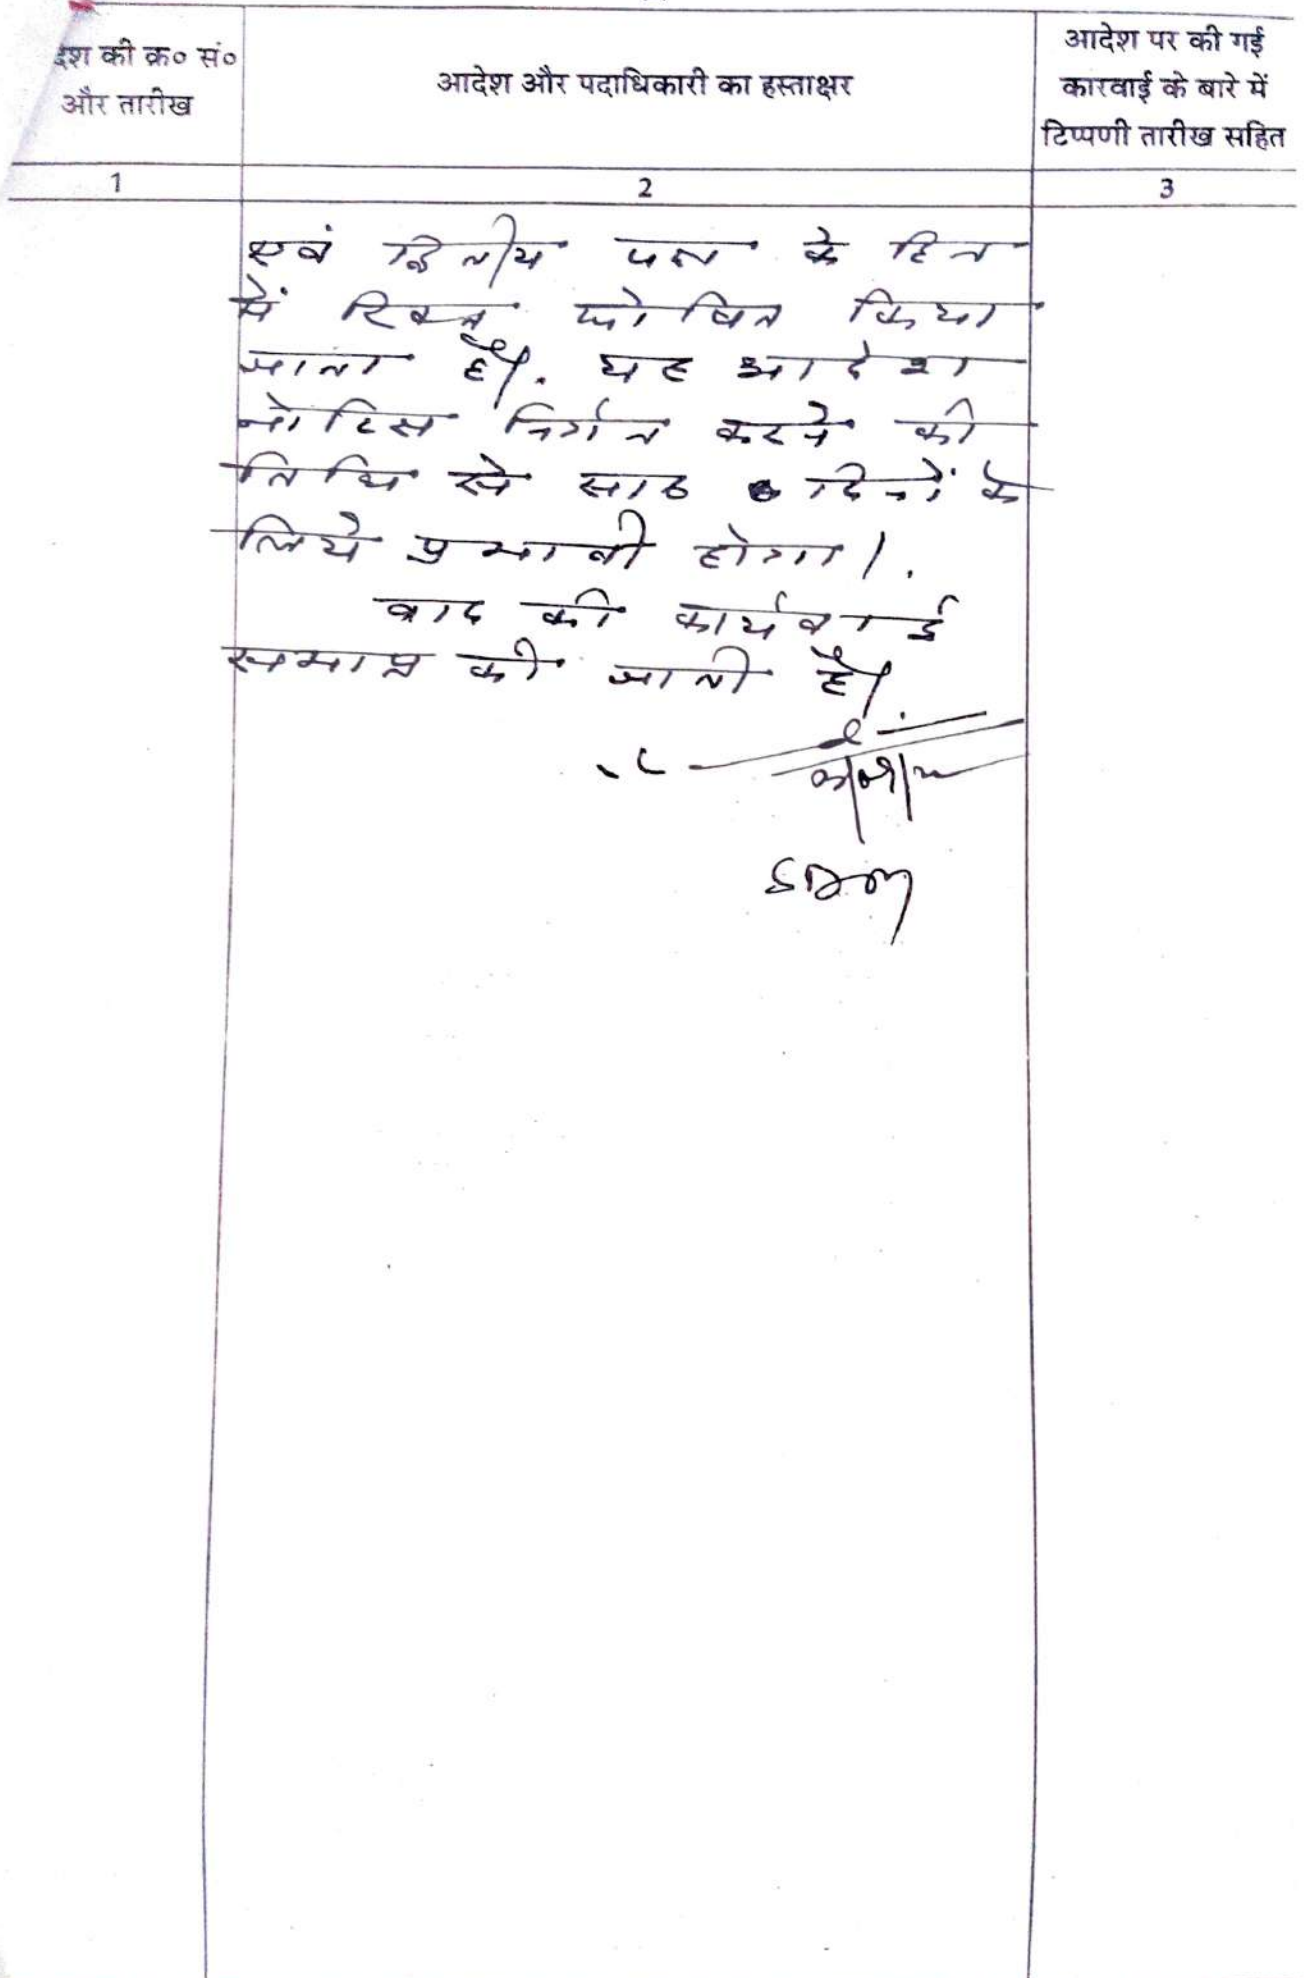 देश की क्र० सं०
और तारीख
आदेश और पदाधिकारी का हस्ताक्षर
आदेश पर की गई
कारवाई के बारे में
टिप्पणी तारीख सहित
1 2 3
एवं द्वितीय पक्ष के हित
में रिक्त घोषित किया
जाता है। यह आदेश
नोटिस निर्गत करने की
तिथि से साठ दिनों के
लिये प्रभावी होगा।
वाद की कार्यवाई
समाप्त की जाती है।
SDM